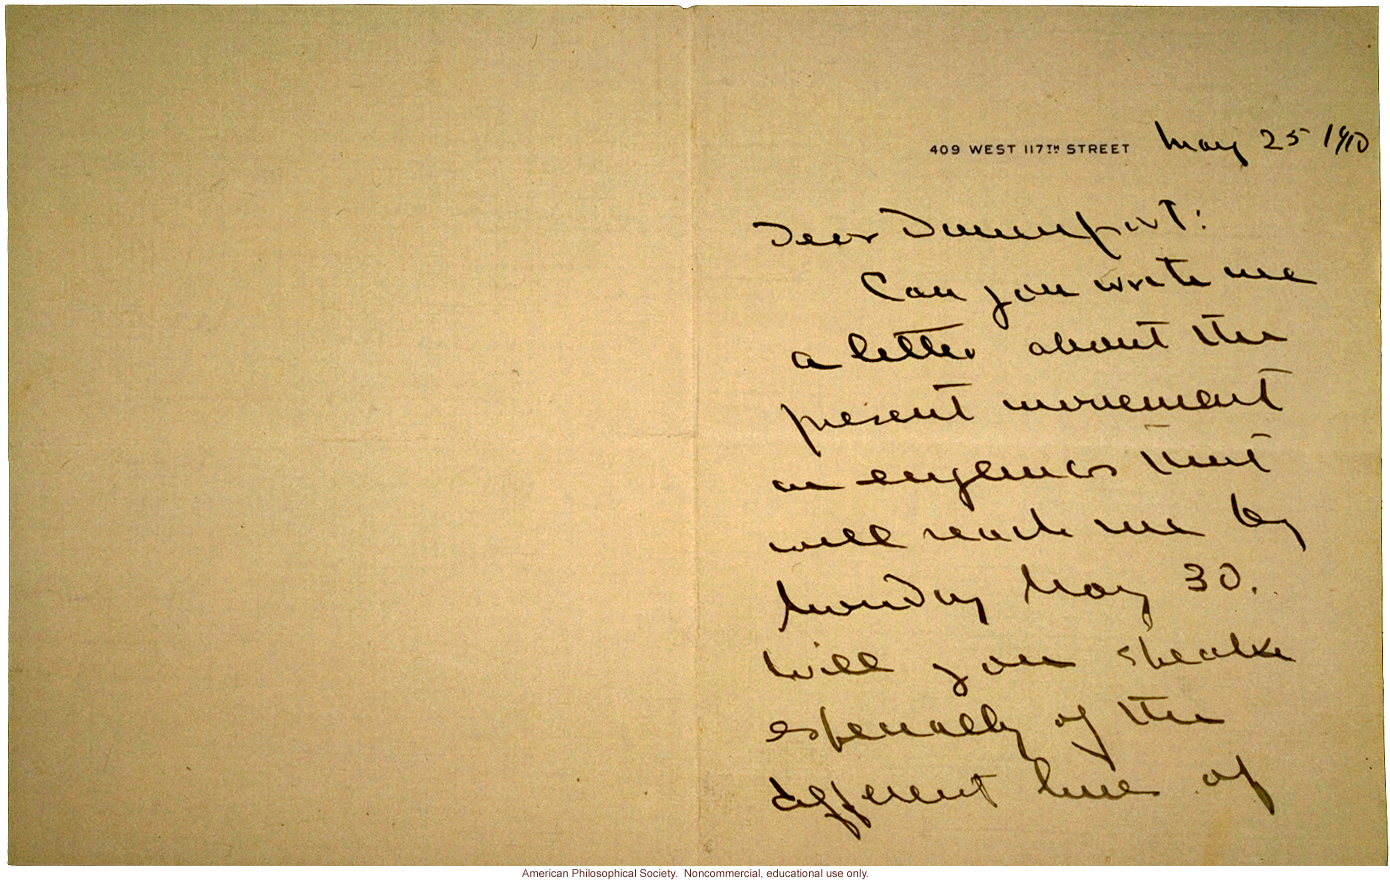 409 WEST 117TH STREET May 25 1910
Dear Davenport:
Can you write me
a letter about the
present movement
in eugenics that
will reach me by
Monday May 30.
Will you speak
especially of the
different lines of
American Philosophical Society. Noncommercial, educational use only.